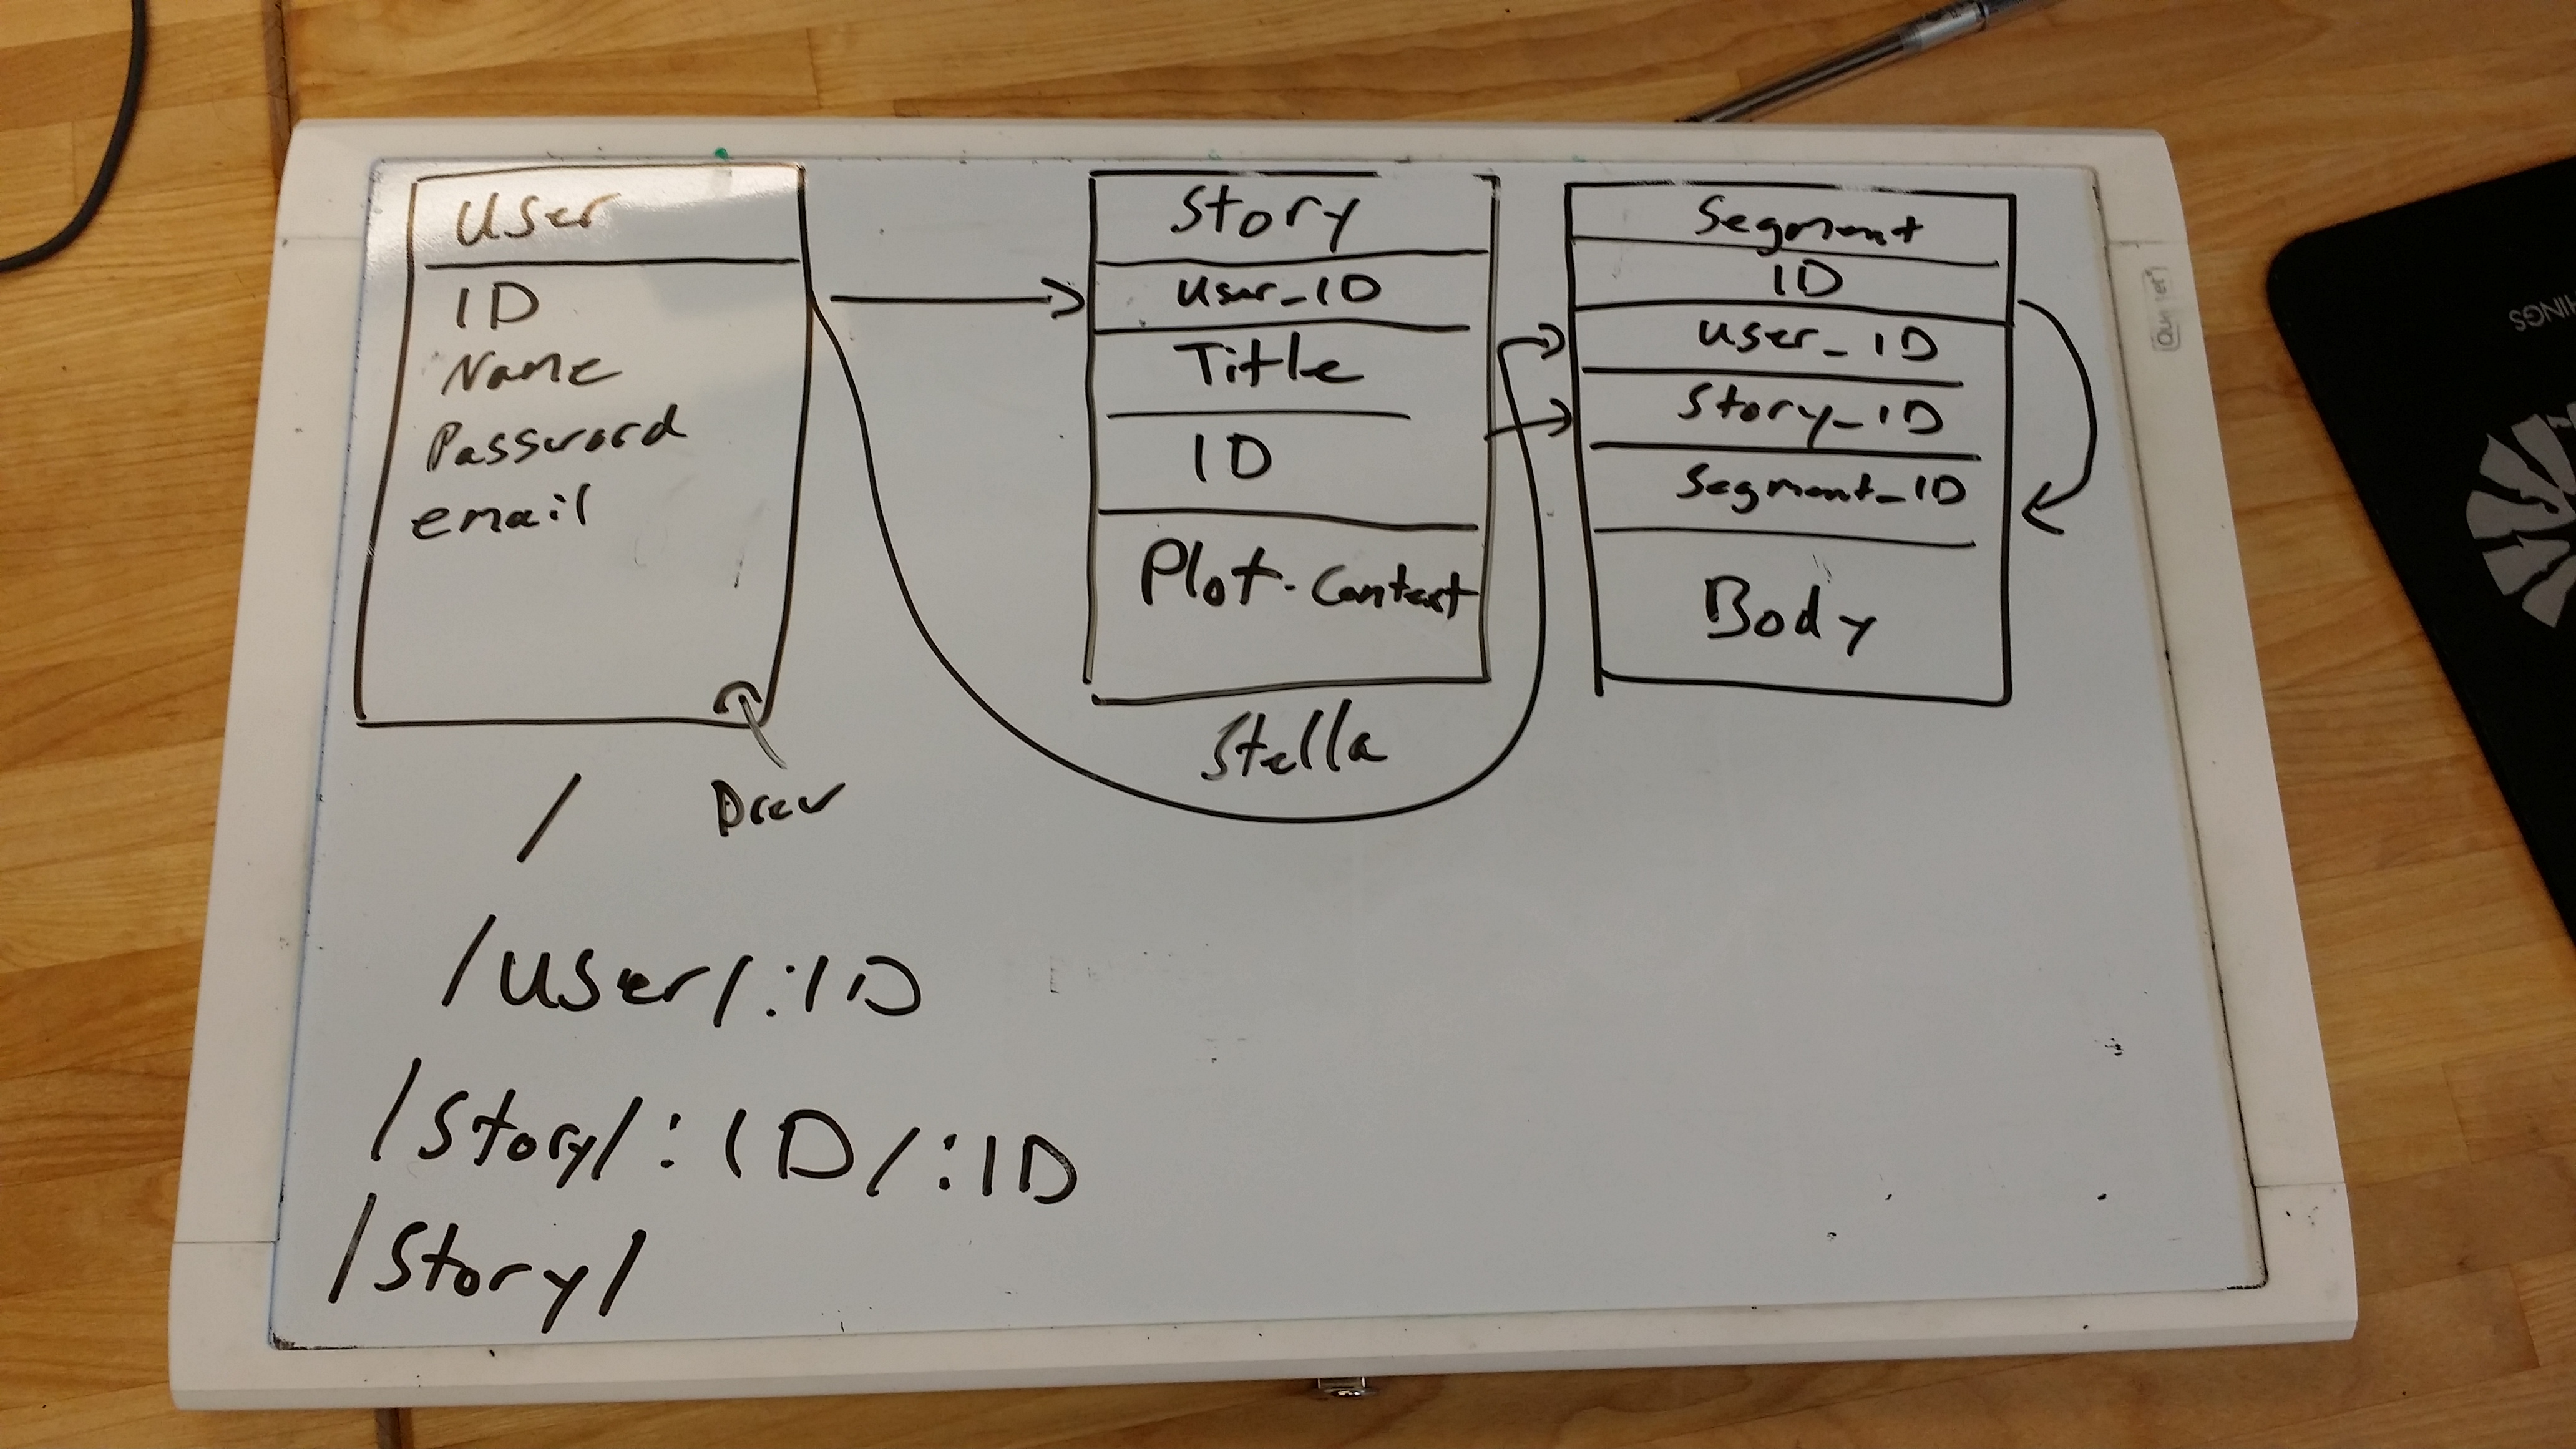 User
ID
Name
Password
email
Story
User_ID
Title
ID
Plot-Context
Stella
Segment
ID
User_ID
Story_ID
Segment_ID
Body
/
/User/:ID
/Story/:ID/:ID
/Story/
THINGS